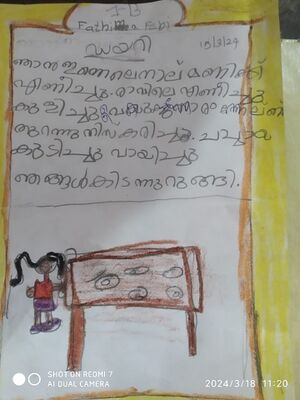 1 B
Fathima Febi
ഡയറി
18/3/24
ഞാൻ ഇന്നലെ നാല് മണിക്ക്
എണിച്ചു. രാവിലെ എണീച്ചു
കുളിച്ചു
തുറന്നു നിസ്കരിച്ചു. ചായ
കുടിച്ചു വായിച്ചു
ഞങ്ങൾ കിടന്നുറങ്ങി.
SHOT ON REDMI 7
AI DUAL CAMERA
2024/3/18 11:20